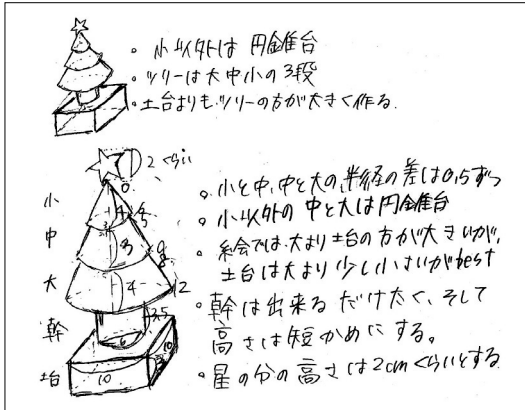 ・小以外は円錐台
・ツリーは大中小の3段
・土台よりもツリーの方が大きく作る。
2くらい
小
中
大
幹
土台
4
3
4
2
3.5
6
10
10
・小と中、中と大の半径の差は0.5ずつ
・小以外の中と大は円錐台
・絵では大より土台の方が大きいが、
土台は大より少し小さいがbest
・幹は出来るだけ太く、そして
高さは短かめにする。
・星の分の高さは2cmくらいとする